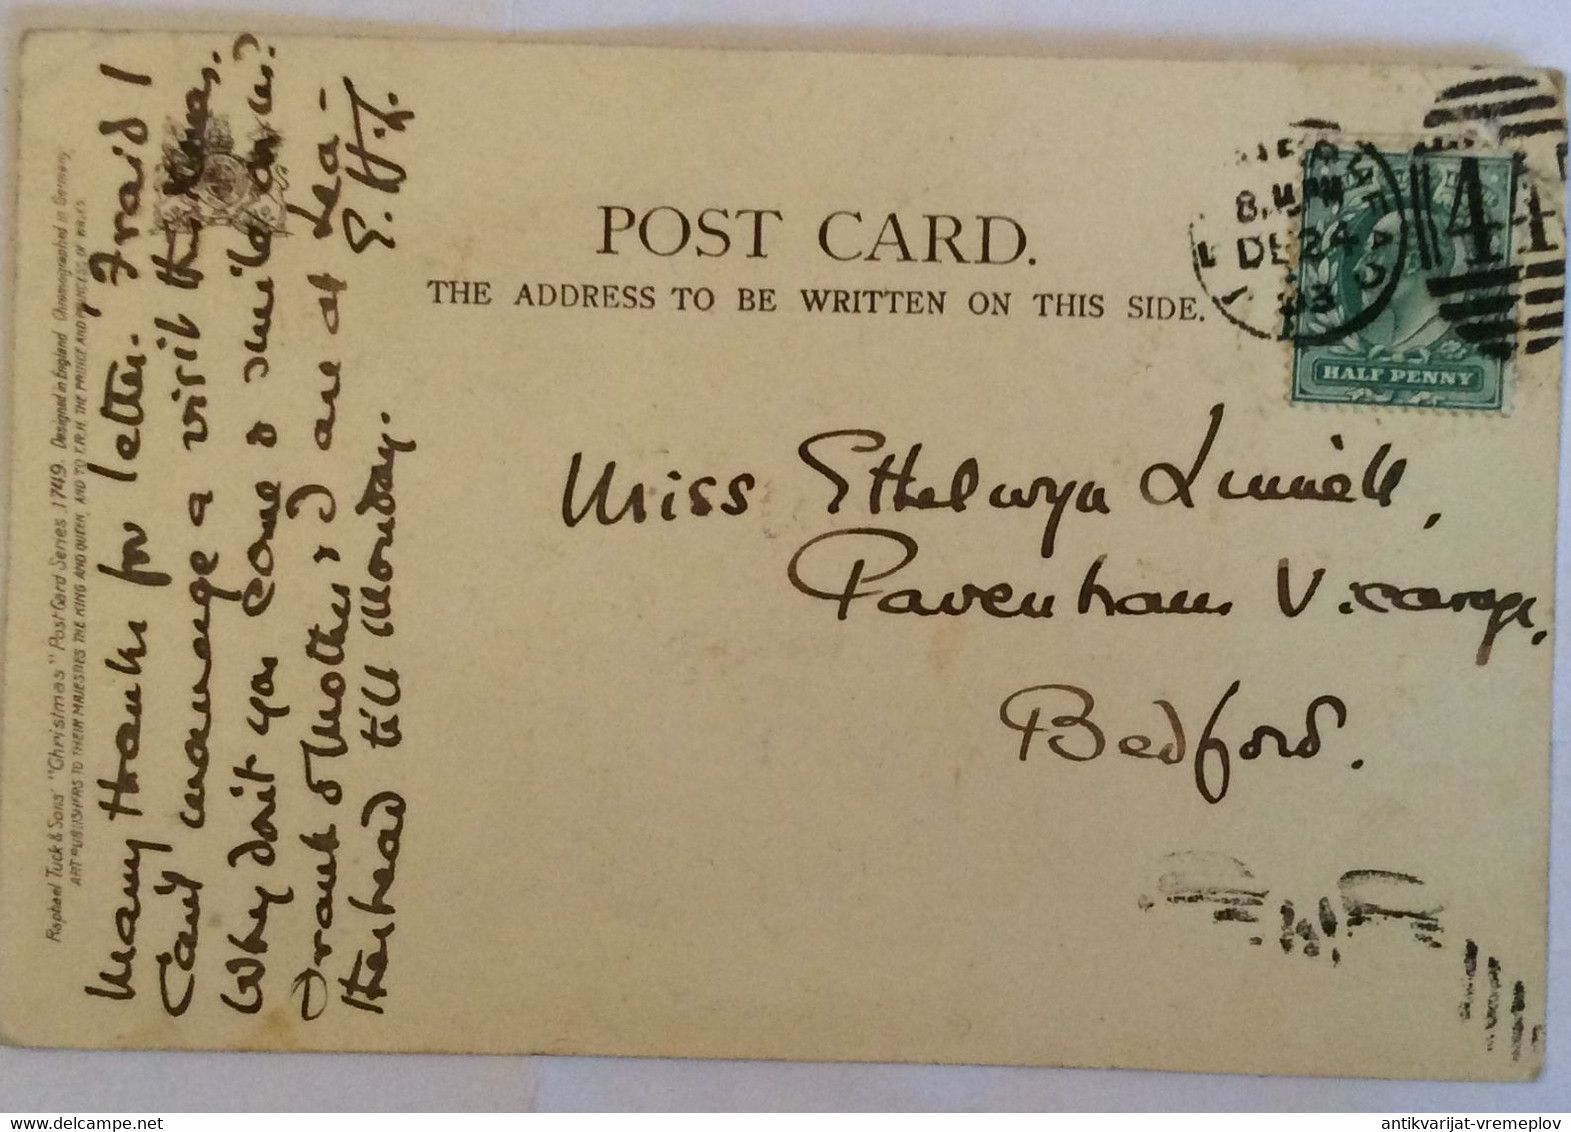 Raphael Tuck & Sons' "Christmas" Post Card Series 1749. Designed in England Chromographed in Germany.
ART PUBLISHERS TO THEIR MAJESTIES THE KING AND QUEEN, AND TO T.R.H. THE PRINCE AND PRINCESS OF WALES.
Many thanks for letter. 'Fraid I
Can't manage a visit this
Why don't you come &
Frank & Mother & I are at
till Monday.
E.H.
POST CARD.
THE ADDRESS TO BE WRITTEN ON THIS SIDE.
DE 24
03
44
HALF PENNY
Miss Ethelwyn
Pavenham Vicarage,
Bedford.
antikvarijat-vremeplov